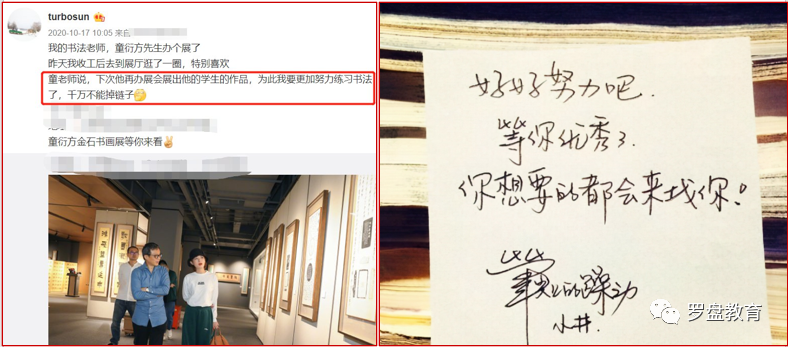 turbosun
2020-10-17 10:05 来自
我的书法老师，童衍方先生办个展了
昨天我收工后去到展厅逛了一圈，特别喜欢
童老师说，下次他再办展会展出他的学生的作品，为此我要更加努力练习书法
了，千万不能掉链子
童衍方金石书画展等你来看
好好努力吧.
等你优秀了.
你想要的都会来找你!
的躁动
小井.
罗盘教育